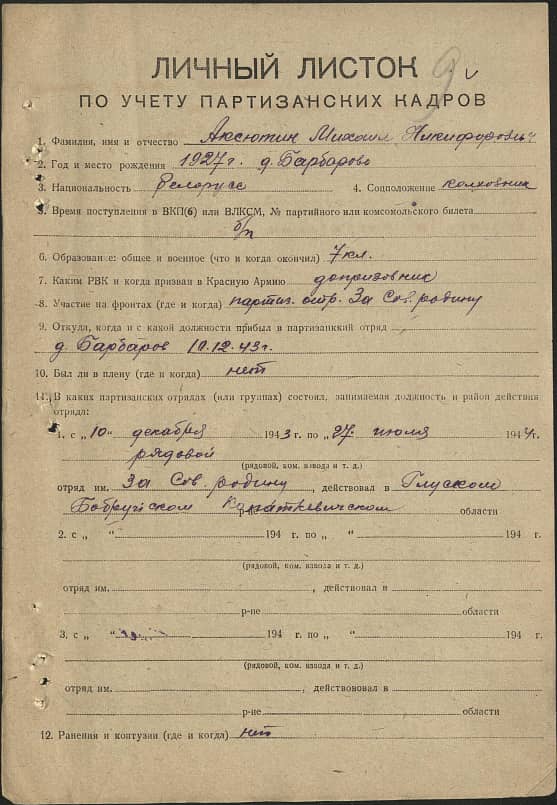 ЛИЧНЫЙ ЛИСТОК
ПО УЧЕТУ ПАРТИЗАНСКИХ КАДРОВ
1. Фамилия, имя и отчество Аксютин Михаил Никифорович
2. Год и место рождения 1927г. д. Барбарово
3. Национальность белорусс 4. Соцположение колхозник
5. Время поступления в ВКП(б) или ВЛКСМ, № партийного или комсомольского билета
б/п
6. Образование: общее и военное (что и когда окончил) 7 кл.
7. Каким РВК и когда призван в Красную Армию допризовник
8. Участие на фронтах (где и когда) партиз. отр. За Сов. родину
9. Откуда, когда и с какой должности прибыл в партизанский отряд
д. Барбаров 10.12.43г.
10. Был ли в плену (где и когда) нет
11. В каких партизанских отрядах (или группах) состоял, занимаемая должность и район действия
отряда:
1. с „10" декабря 1943 г. по „27" июля 1944 г.
рядовой
(рядовой, ком. взвода и т. д.)
отряд им. За Сов. родину, действовал в Глуском
Бобруйском области
2. с „ " 194 г. по „ " 194 г.
(рядовой, ком. взвода и т. д.)
отряд им. , действовал в
р-не области
3. с „ " 194 г. по „ " 194 г.
(рядовой, ком. взвода и т. д.)
отряд им. , действовал в
р-не области
12. Ранения и контузии (где и когда) нет